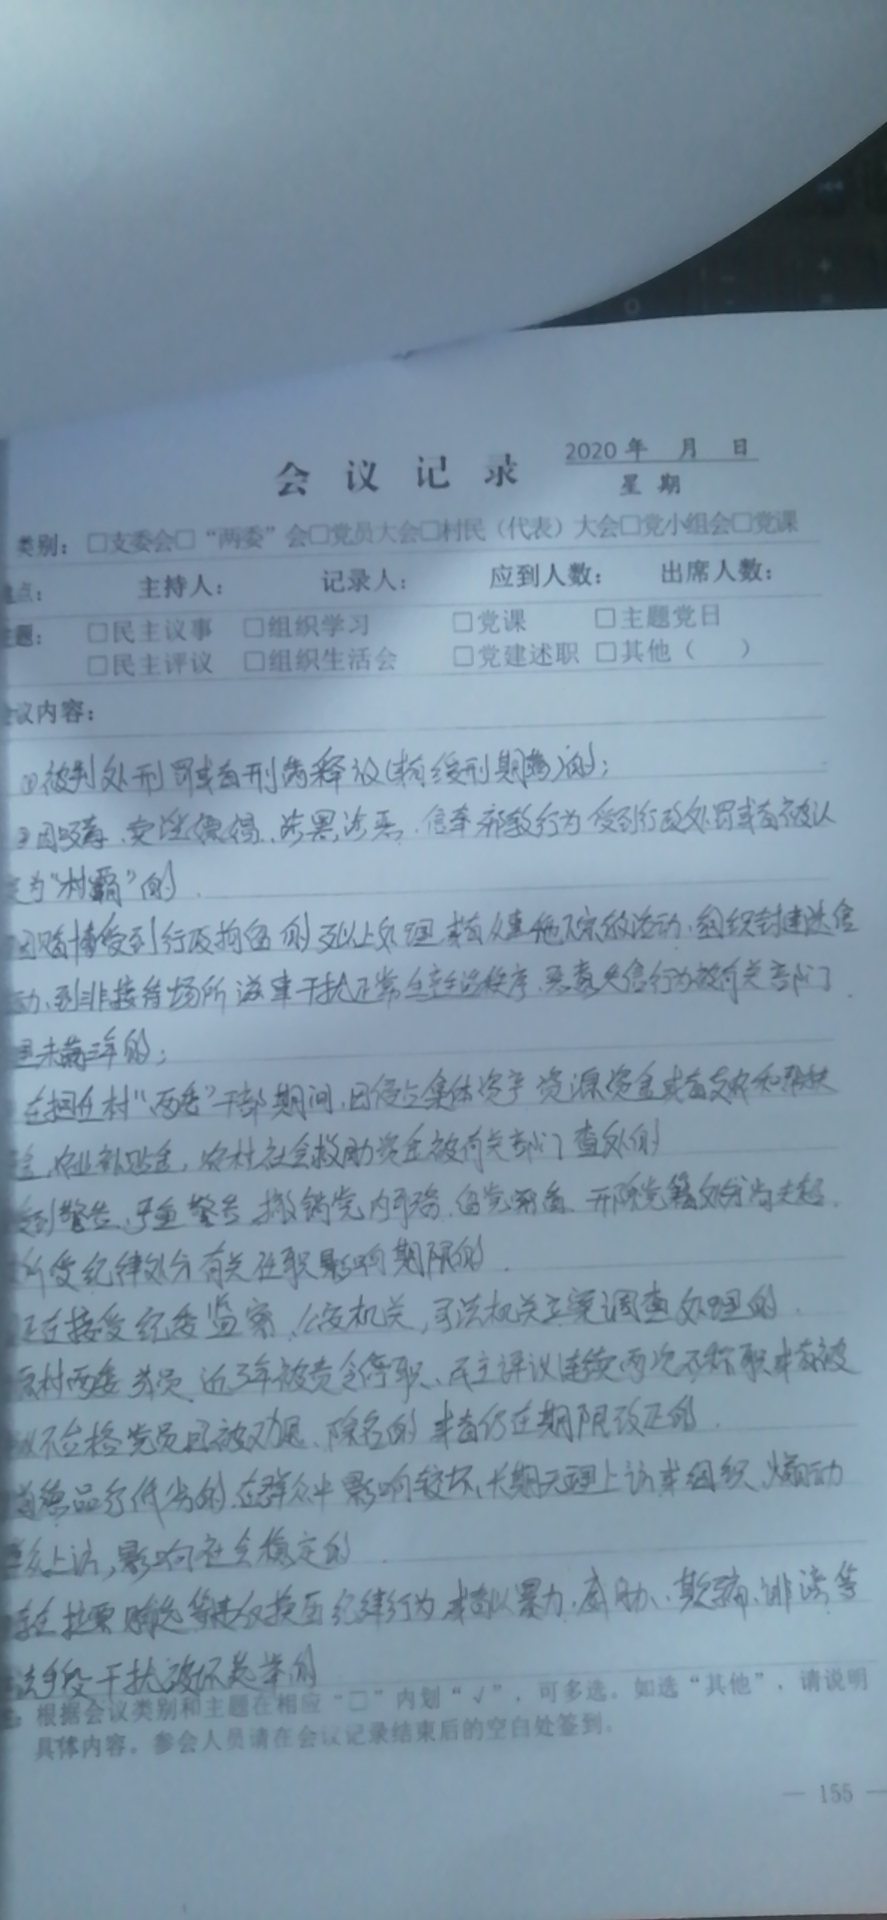 会议记录
2020 年 月 日
星 期
类别：□支委会□“两委”会□党员大会□村民（代表）大会□党小组会□党课
点： 主持人： 记录人： 应到人数： 出席人数：
题： □民主议事 □组织学习 □党课 □主题党日
□民主评议 □组织生活会 □党建述职 □其他（ ）
议内容：
①被判处刑罚或者刑满释放(或缓刑期满)的；
因吸毒、卖淫嫖娼、涉黑涉恶、信奉邪教行为受到行政处罚或者被认
为“村霸”的
因赌博受到行政拘留的以上处理,或者从事他活动、组织封建迷信
动、到非接待场所滋事干扰正常生产生活秩序、恶意失信行为被有关部门
未满三年的；
在担任村“两委”干部期间,因侵占集体资产资源资金或者文成和帮扶
金,农业补贴金,农村社会救助资金被有关部门查处的
受到警告、严重警告、撤销党内职务、留党察看、开除党籍处分尚未超
所受纪律处分有关任职影响期限的
正在接受纪委监察、公安机关、司法机关立案调查处理的
村两委成员近3年被责令停职、民主评议连续两次不称职或者被
以不合格党员且被劝退、除名的或者仍在期限改正的
道德品行低劣的,在群众中影响较坏、长期无理上访或组织、煽动
上访,影响社会稳定的
在拉票贿选等其纪律行为或者以暴力、威胁、欺骗、诽谤等
手段干扰破坏选举的
根据会议类别和主题在相应“□”内划“√”，可多选。如选“其他”，请说明
具体内容。参会人员请在会议记录结束后的空白处签到。
— 155 —